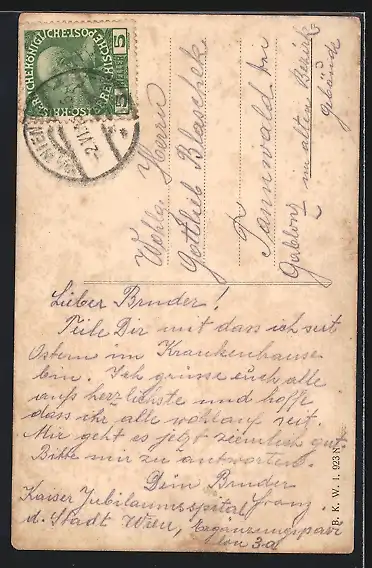 KAISERLICHE KÖNIGLICHE ÖSTERREICHISCHE POST
5 HELLER 5
WIEN
Wohlg. Herrn
Gottlieb Blaschek
Tannwald b/
Gablonz im alten Bezirk
gebäude
Lieber Bruder!
Teile Dir mit dass ich seit
Ostern im Krankenhause
bin. Ich grüsse euch alle
aufs herzlichste und hoffe
dass ihr alle wohlauf seit.
Mir geht es jetzt ziemlich gut.
Bitte mir zu antworten.
Dein Bruder
Franz
Kaiser Jubiläumsspital
d. Stadt Wien, Ergänzungspavi
lon 3a
B. K. W. I. 923 N